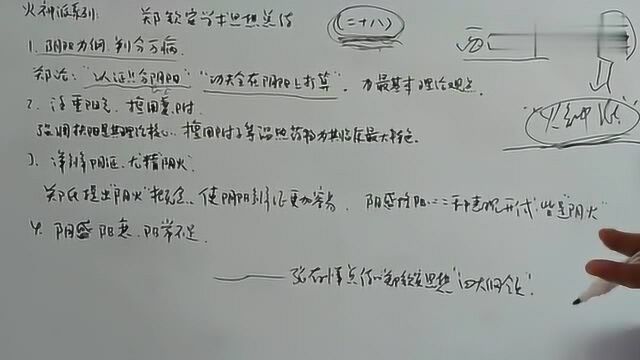 火神派系列: 郑钦安学术思想总结 (二十八)
1. 阴阳为纲, 判分万病.
郑论: "认证只分阴阳" "功夫全在阴阳上打算". 为最基本理论观点.
2. 注重阳气, 擅用姜附.
强调扶阳是其理论核心. 擅用附子等温热药物为其临床最大特色
3. 详辨阴证, 尤精阴火.
郑氏提出"阴火"概念. 使阴阳辨证更加容易. 阴盛 表现形式, 皆是"阴火"
4. 阴盛阳衰. 阳常不足.
—— 张存悌总结郑钦安思想"四大纲领".
"火神派"